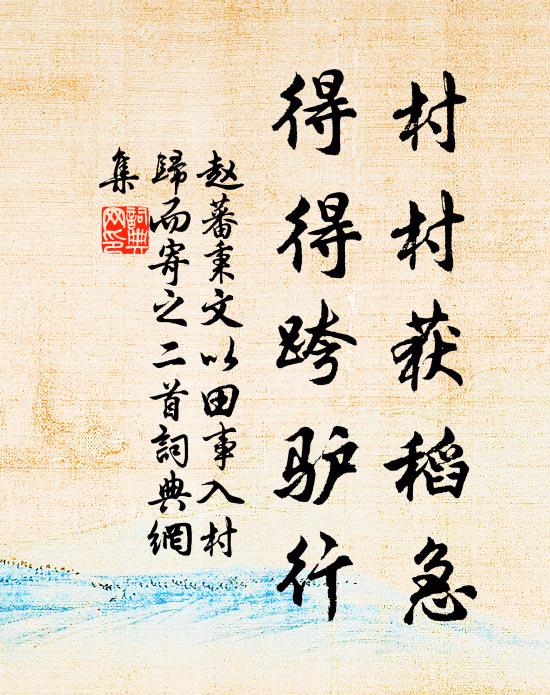 村村获稻急
得得跨驴行
赵蕃秉文以田事入村
歸而寄之二首詞典網
集
詞典
网印